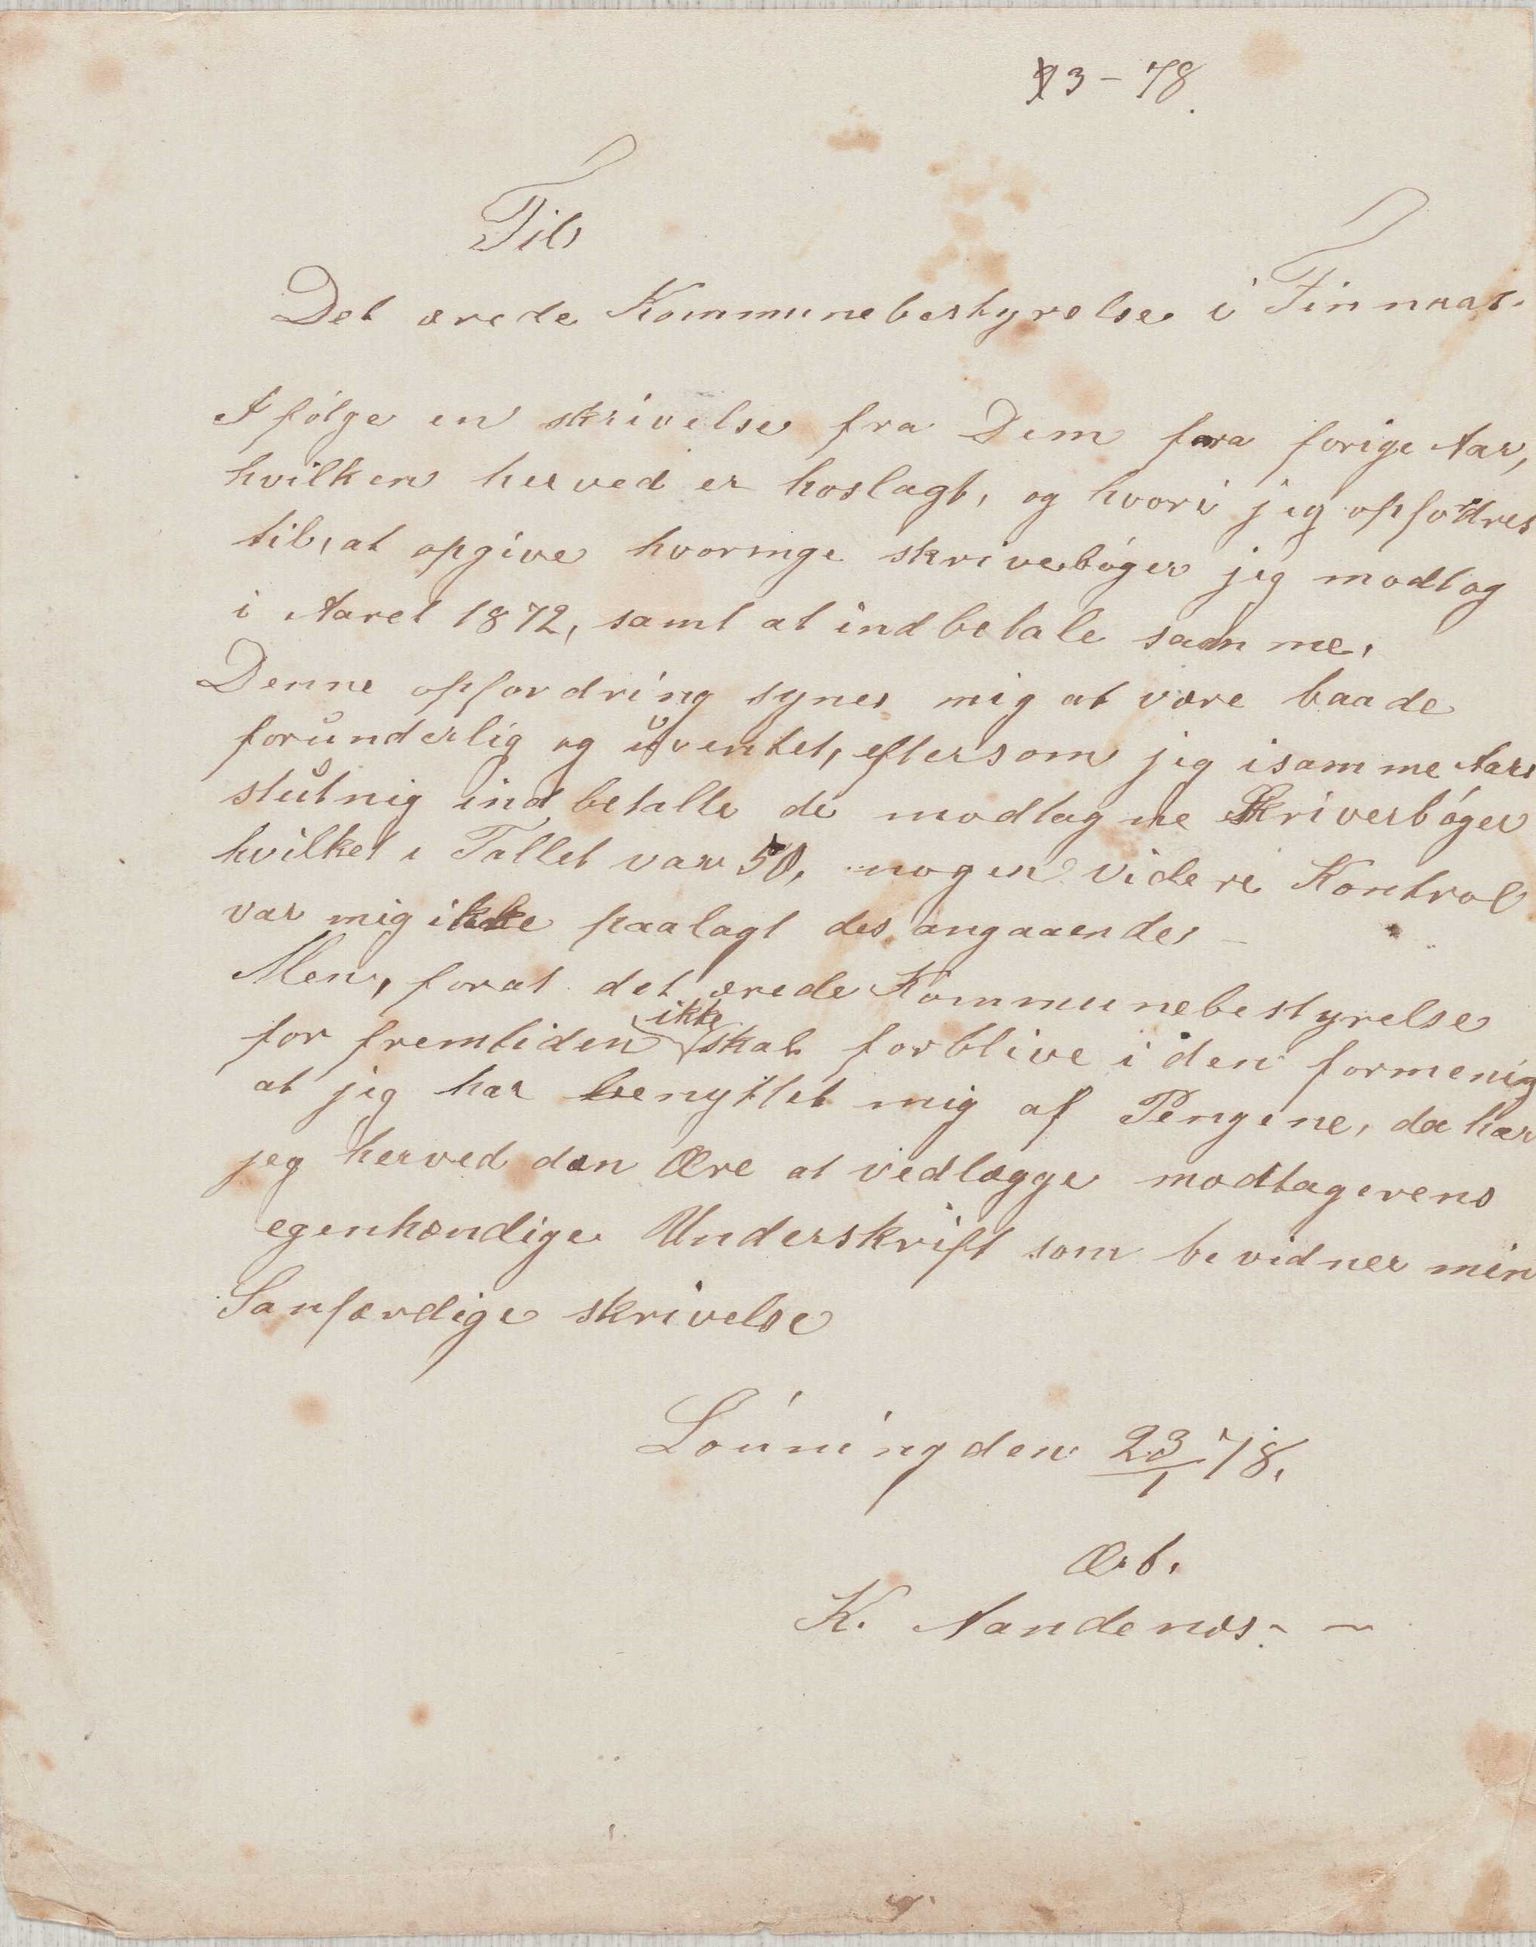 93 - 78.
Til
Det ærede Kommunebestyrelse i Finnaas.
Ifølge en skrivelse fra Dem fra forige Aar,
hvilken herved er hoslagt, og hvori jeg opfordres
til, at opgive hvormge skrivebøger jeg modtog
i Aaret 1872, samt at indbetale samme.
Denne opfordring synes mig at være baade
forunderlig og uventet, eftersom jeg isamme Aars
slutnig indbetalte de modtagne Skrivesbøger
hvilket i Tallet var 50, nogen videre Kontrol
var mig ikke paalagt des angaaende,
Men, forat det ærede Kommunebestyrelse
for fremtiden ikke skal forblive i den formenig
at jeg har benyttet mig af Pengene, da har
jeg herved den Ære at vedlægge modtagerens
egenhændige Underskrift som bevidner min
Sanfærdige skrivelse
Louning den 23/1 78.
Ærb.
K. Nandenæs